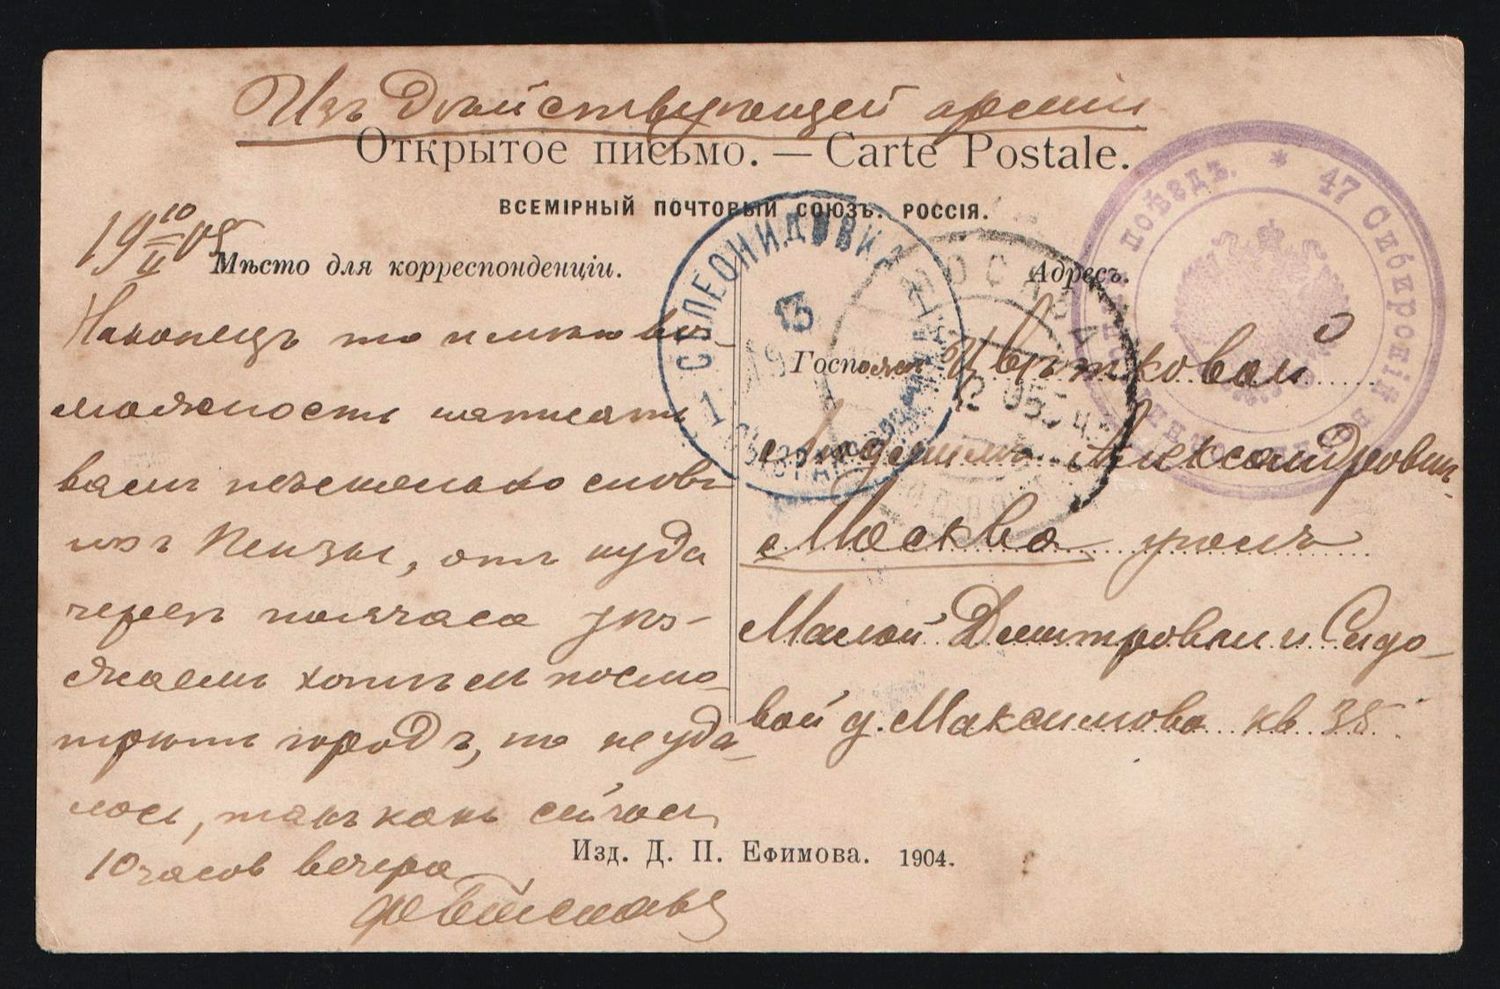 Изъ Дѣйствующей арміи
Открытое письмо. — Carte Postale.
ВСЕМІРНЫЙ ПОЧТОВЫЙ СОЮЗЪ. РОССІЯ.
19 10/II 05
Мѣсто для корреспонденціи.
Наконецъ то имѣю воз
можность написать
вамъ нѣсколько словъ
изъ Пензы, отъ куда
черезъ полчаса уѣз-
жаемъ хотѣли посмо-
трѣть городъ, но не уда-
лось, такъ какъ сейчасъ
10 часов вечера
Адресъ.
Госпожѣ Цвѣтковой
Людмилѣ Александровнѣ
Москва уголъ
Малой Дмитровки и Садо-
вой д. Максимова кв 35
Изд. Д. П. Ефимова. 1904.
* 47 Сибирскій поѣздъ.
13
1
МОСКВА